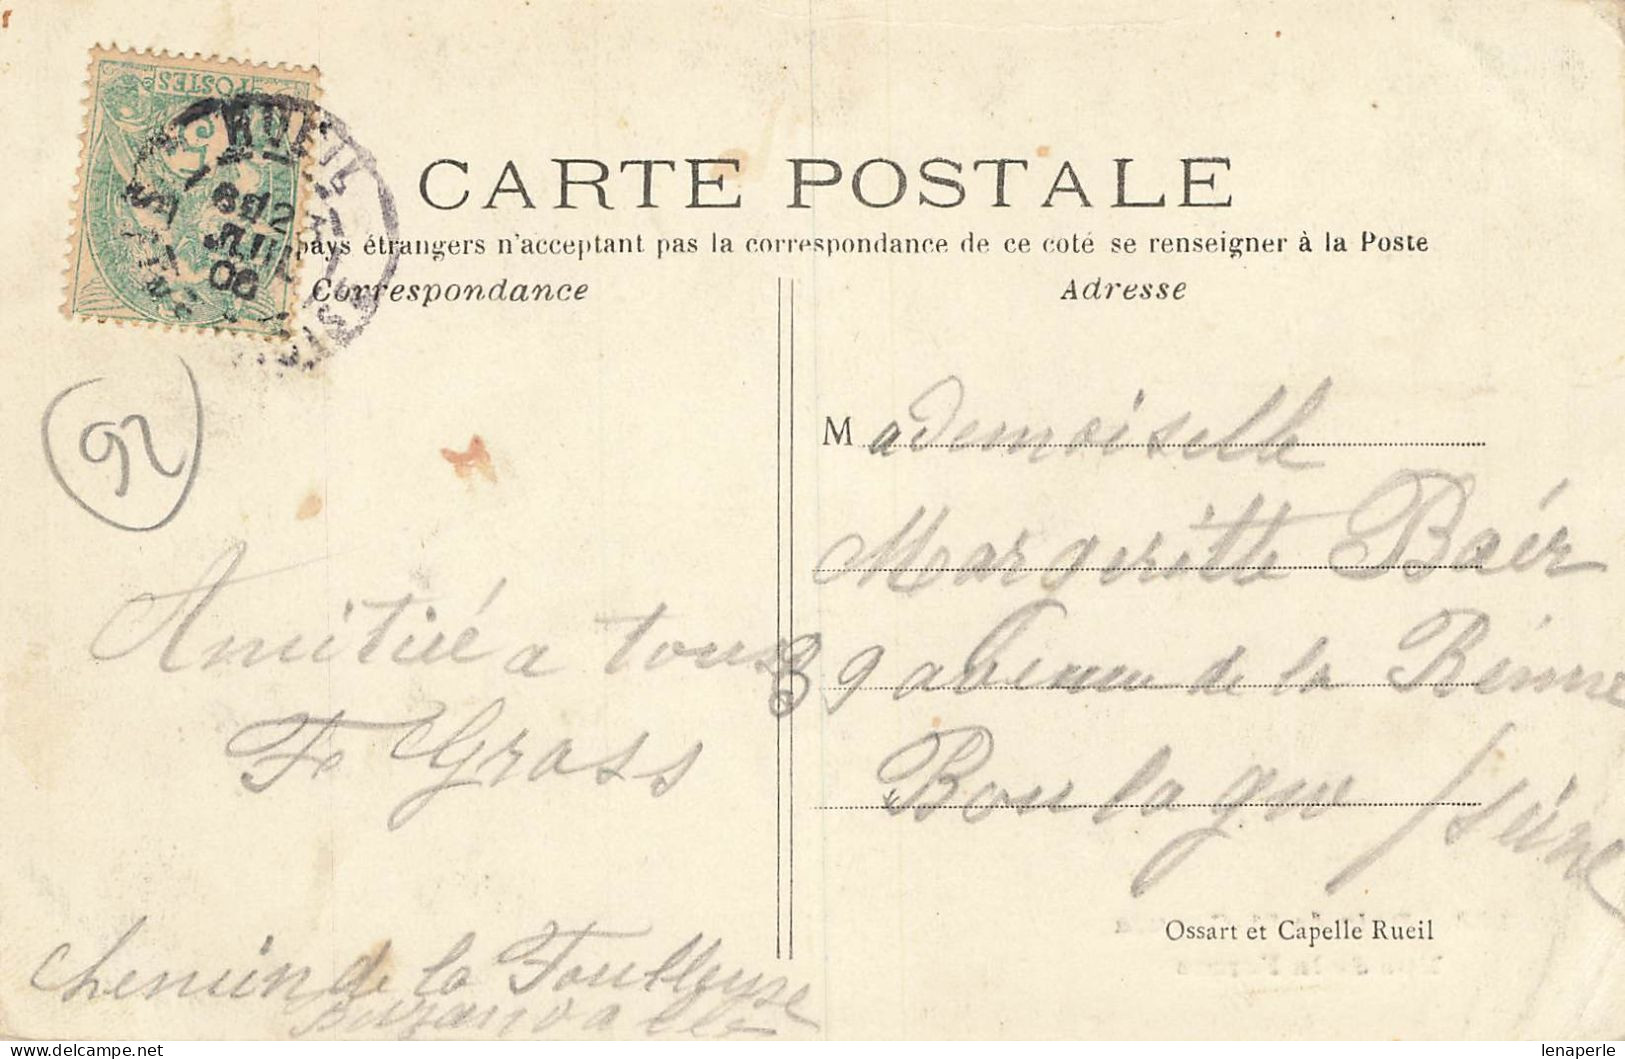 POSTES
RUEIL
CARTE POSTALE
pays étrangers n'acceptant pas la correspondance de ce coté se renseigner à la Poste
Correspondance
Adresse
92
Mademoiselle
Margueritte Baér
89 avenue de la Reinne
Boulogne / seine
Amitiée a tous
Fe Grass
chemin de la Foulleuse
Buzanvalle
Ossart et Capelle Rueil
lenaperle